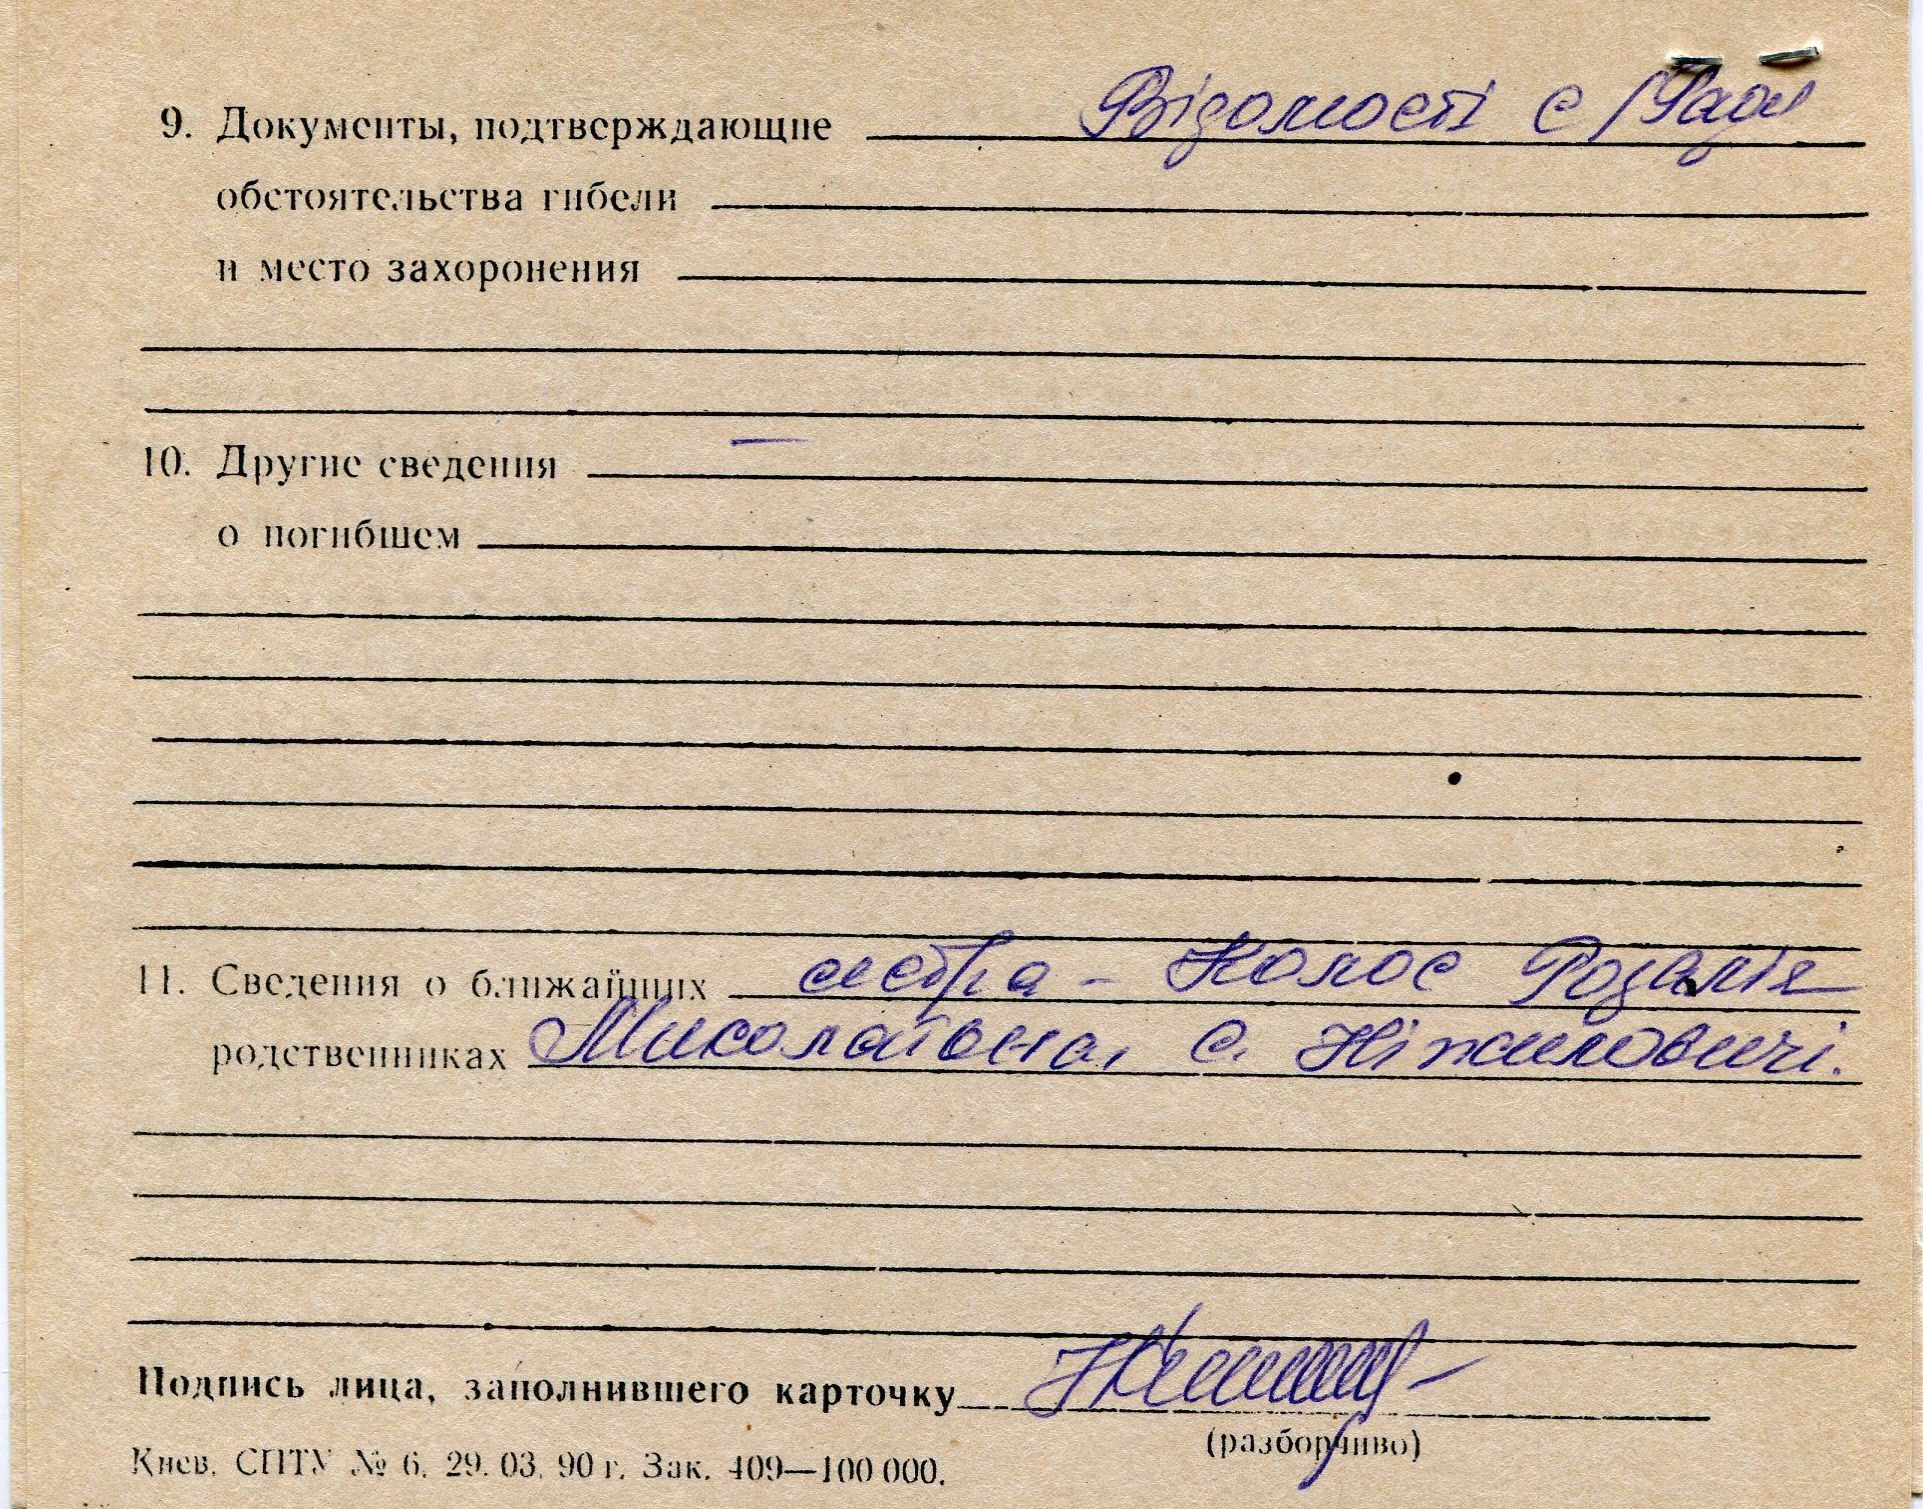 9. Документы, подтверждающие Відомості с/Ради
обстоятельства гибели
и место захоронения
10. Другие сведения —
о погибшем
11. Сведения о ближайших сестра - Колос Розалія
родственниках Миколаївна, с. Ніжиловичі.
Подпись лица, заполнившего карточку
(разборчиво)
Киев. СПТУ № 6. 29. 03. 90 г. Зак. 409—100 000.